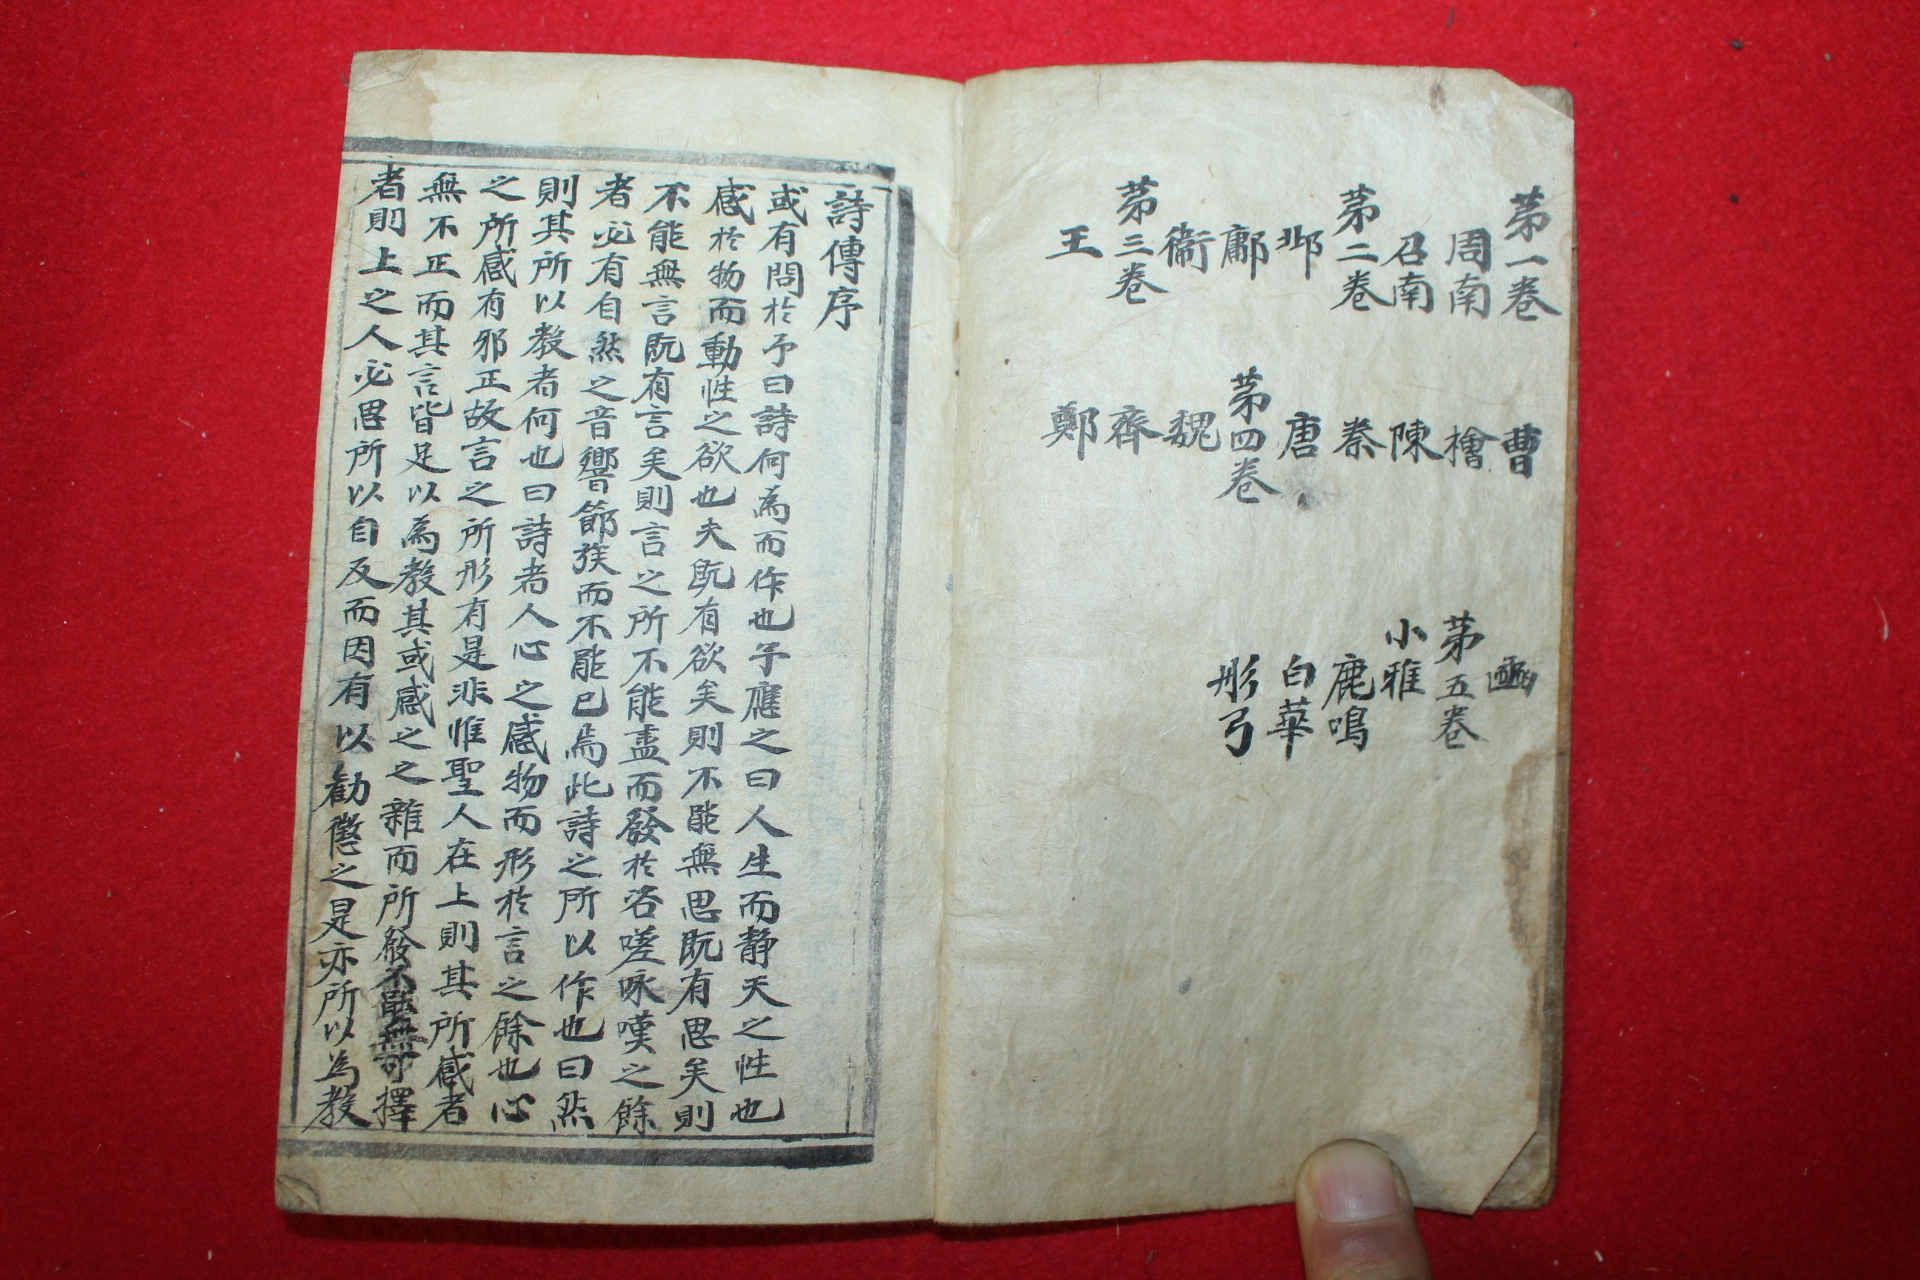 苐一卷
周南
召南
苐二卷
邶
鄘
衞
苐三卷
王
鄭
齊
魏
苐四卷
唐
秦
陳
檜
曹
豳
苐五卷
小雅
鹿鳴
白華
彤弓
詩傳序
或有問於予曰詩何爲而作也予應之曰人生而靜天之性也
感於物而動性之欲也夫旣有欲矣則不能無思旣有思矣則
不能無言旣有言矣則言之所不能盡而發於咨嗟咏嘆之餘
者必有自然之音響節族而不能已焉此詩之所以作也曰然
則其所以敎者何也曰詩者人心之感物而形於言之餘也心
之所感有邪正故言之所形有是非惟聖人在上則其所感者
無不正而其言皆足以爲敎其或感之之雜而所發不能無可擇
者則上之人必思所以自反而因有以勸懲之是亦所以爲敎